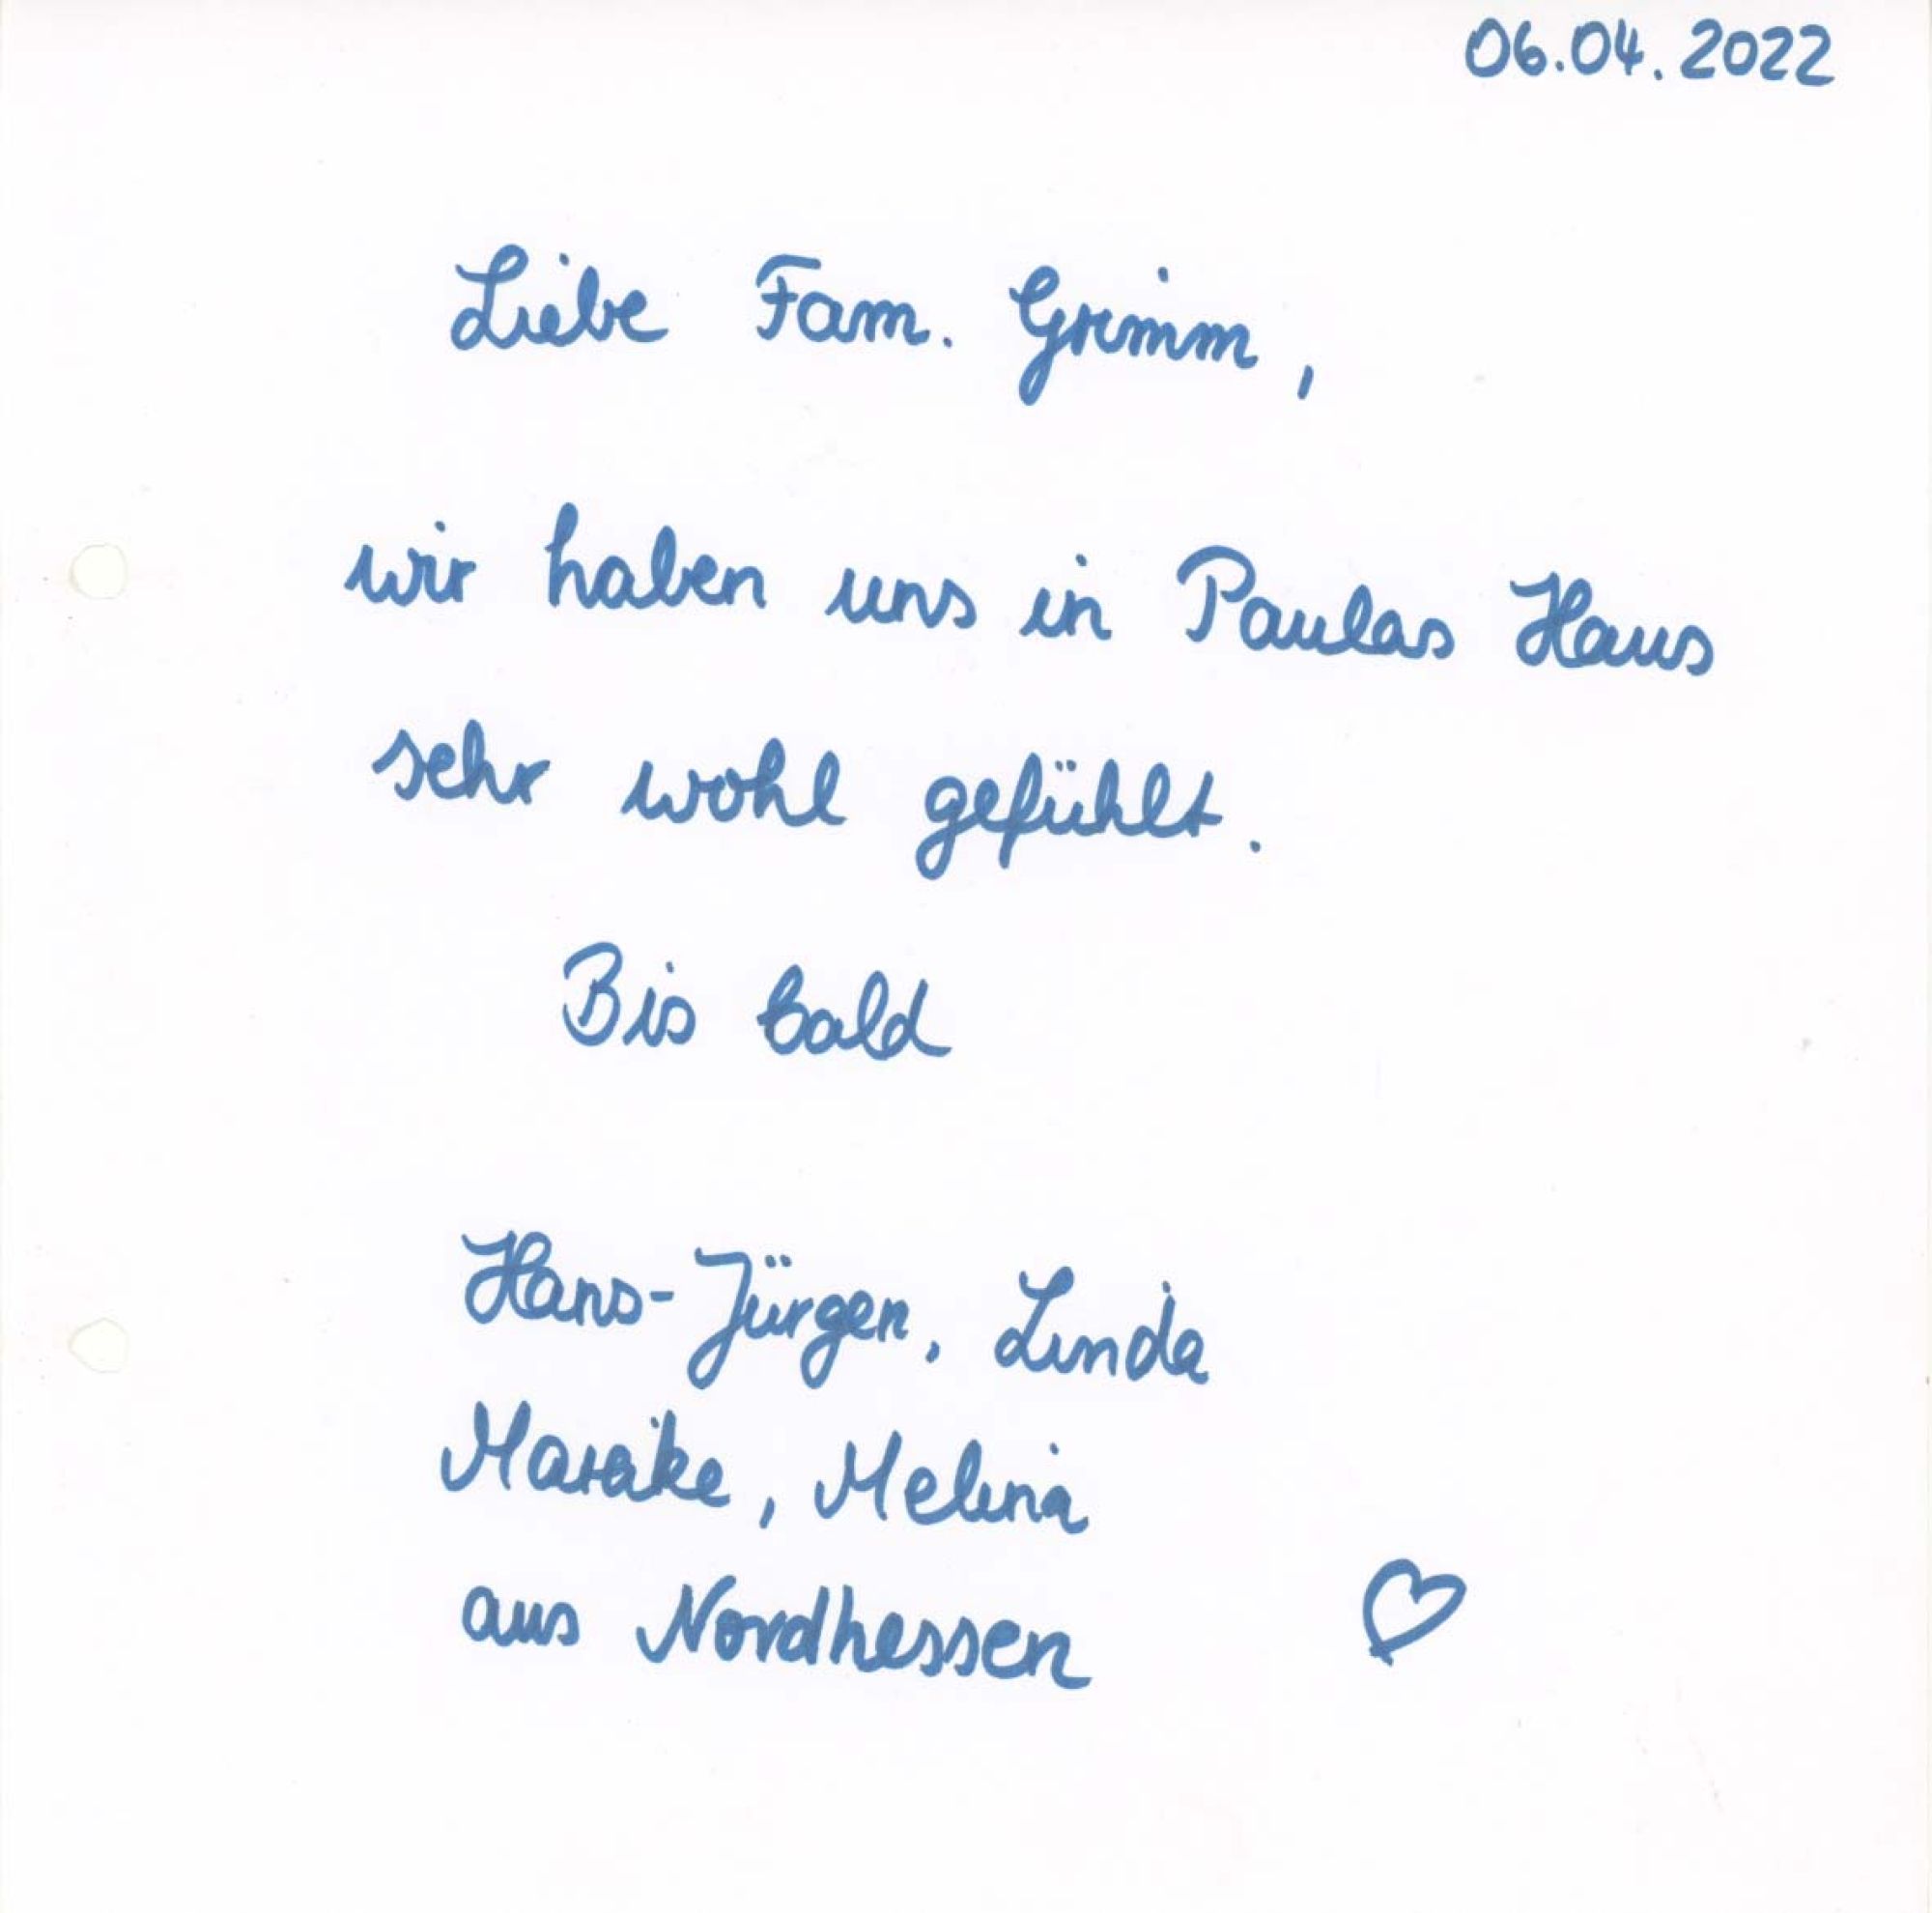 06.04.2022
Liebe Fam. Grimm,
wir haben uns in Paulas Haus
sehr wohl gefühlt.
Bis bald
Hans-Jürgen, Linda
Mareike, Melina
aus Nordhessen